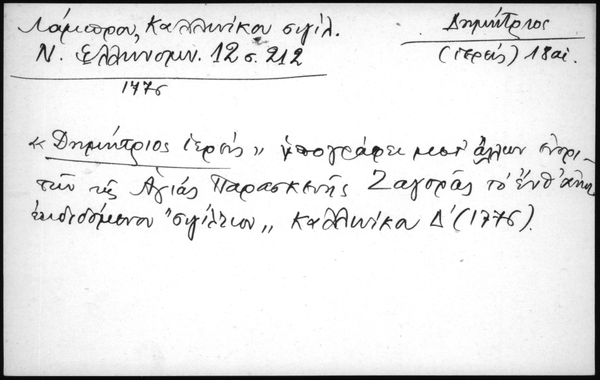 Λάμπρου, Καλλινίκου σιγίλ.
Ν. Ελληνομν. 12 σ. 212
1776
Δημήτριος
(ιερεύς) 18 αἰ.
« Δημήτριος ἱερεύς » ὑπογράφει μετ' ἄλλων
τῶν τῆς Ἁγίας Παρασκευῆς Ζαγορᾶς τὸ ἐνθ' ἀνω
ἐπιδιδόμενον "σιγίλλιον" Καλλινίκου Δ' (1776).